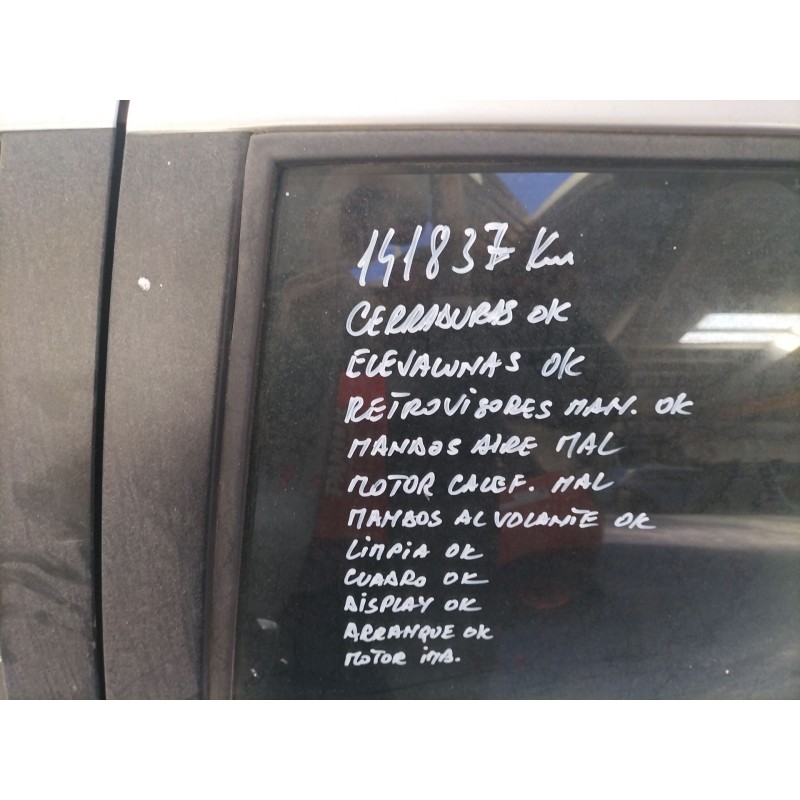 141837 Km
CERRADURAS OK
ELEVALUNAS OK
RETROVISORES MAN. OK
MANDOS AIRE MAL
MOTOR CALEF. MAL
MANDOS AL VOLANTE OK
LIMPIA OK
CUADRO OK
DISPLAY OK
ARRANQUE OK
MOTOR